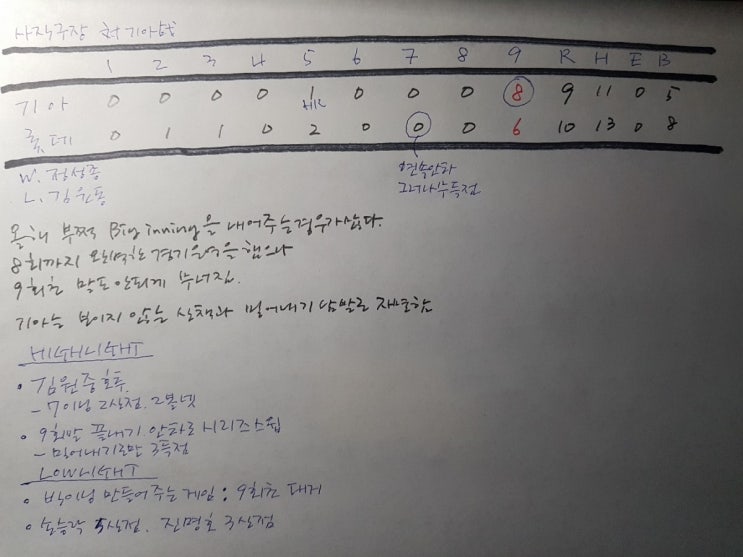 사직구장 컷기아전
1 2 3 4 5 6 7 8 9 R H E B
기아 0 0 0 0 1 0 0 0 8 9 11 0 5
HR
롯데 0 1 1 0 2 0 0 0 6 10 13 0 8
4연속안타
그러나 무득점
W. 정성종
L. 김윤동
올해 부쩍 Big inning을 내어주는 경우가 많다.
8회까지 완벽한 경기운영을 했으나
9회초 말도 안되게 무너짐.
기아는 보이지 않는 실책과 밀어내기 남발로 자멸함
HIGHLIGHT
• 김원중 호투.
- 7이닝 2실점. 2볼넷
• 9회말 끝내기 안타로 시리즈 스윕
- 밀어내기로만 3득점
LOWLIGHT
• 빅이닝 만들어주는 게임 : 9회초
• 손승락 5실점. 진명호 3실점